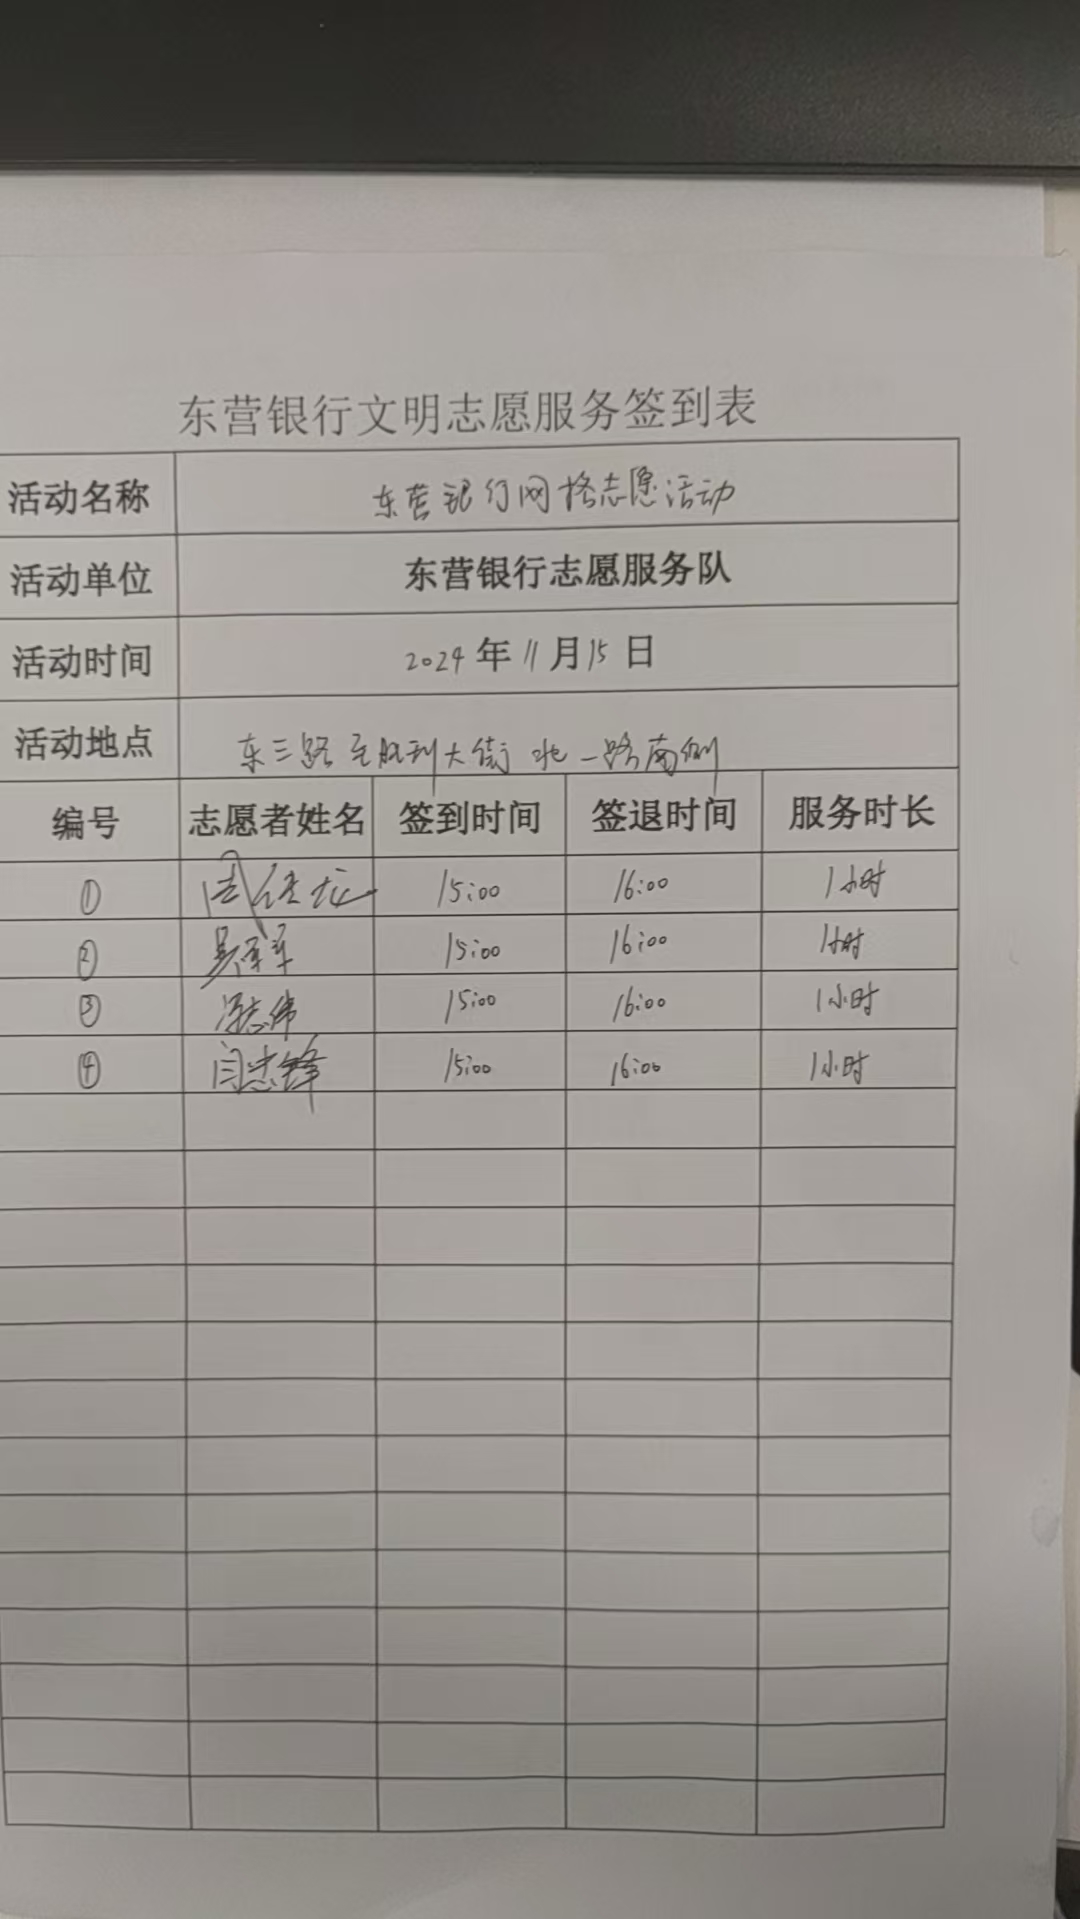 东营银行文明志愿服务签到表
活动名称 东营银行网格志愿活动
活动单位 东营银行志愿服务队
活动时间 2024年11月15日
活动地点 东三路至胜利大街 北一路南侧
编号 志愿者姓名 签到时间 签退时间 服务时长
① 周 龙 15:00 16:00 1小时
② 吴 军 15:00 16:00 1小时
③ 志伟 15:00 16:00 1小时
④ 闫志锋 15:00 16:00 1小时